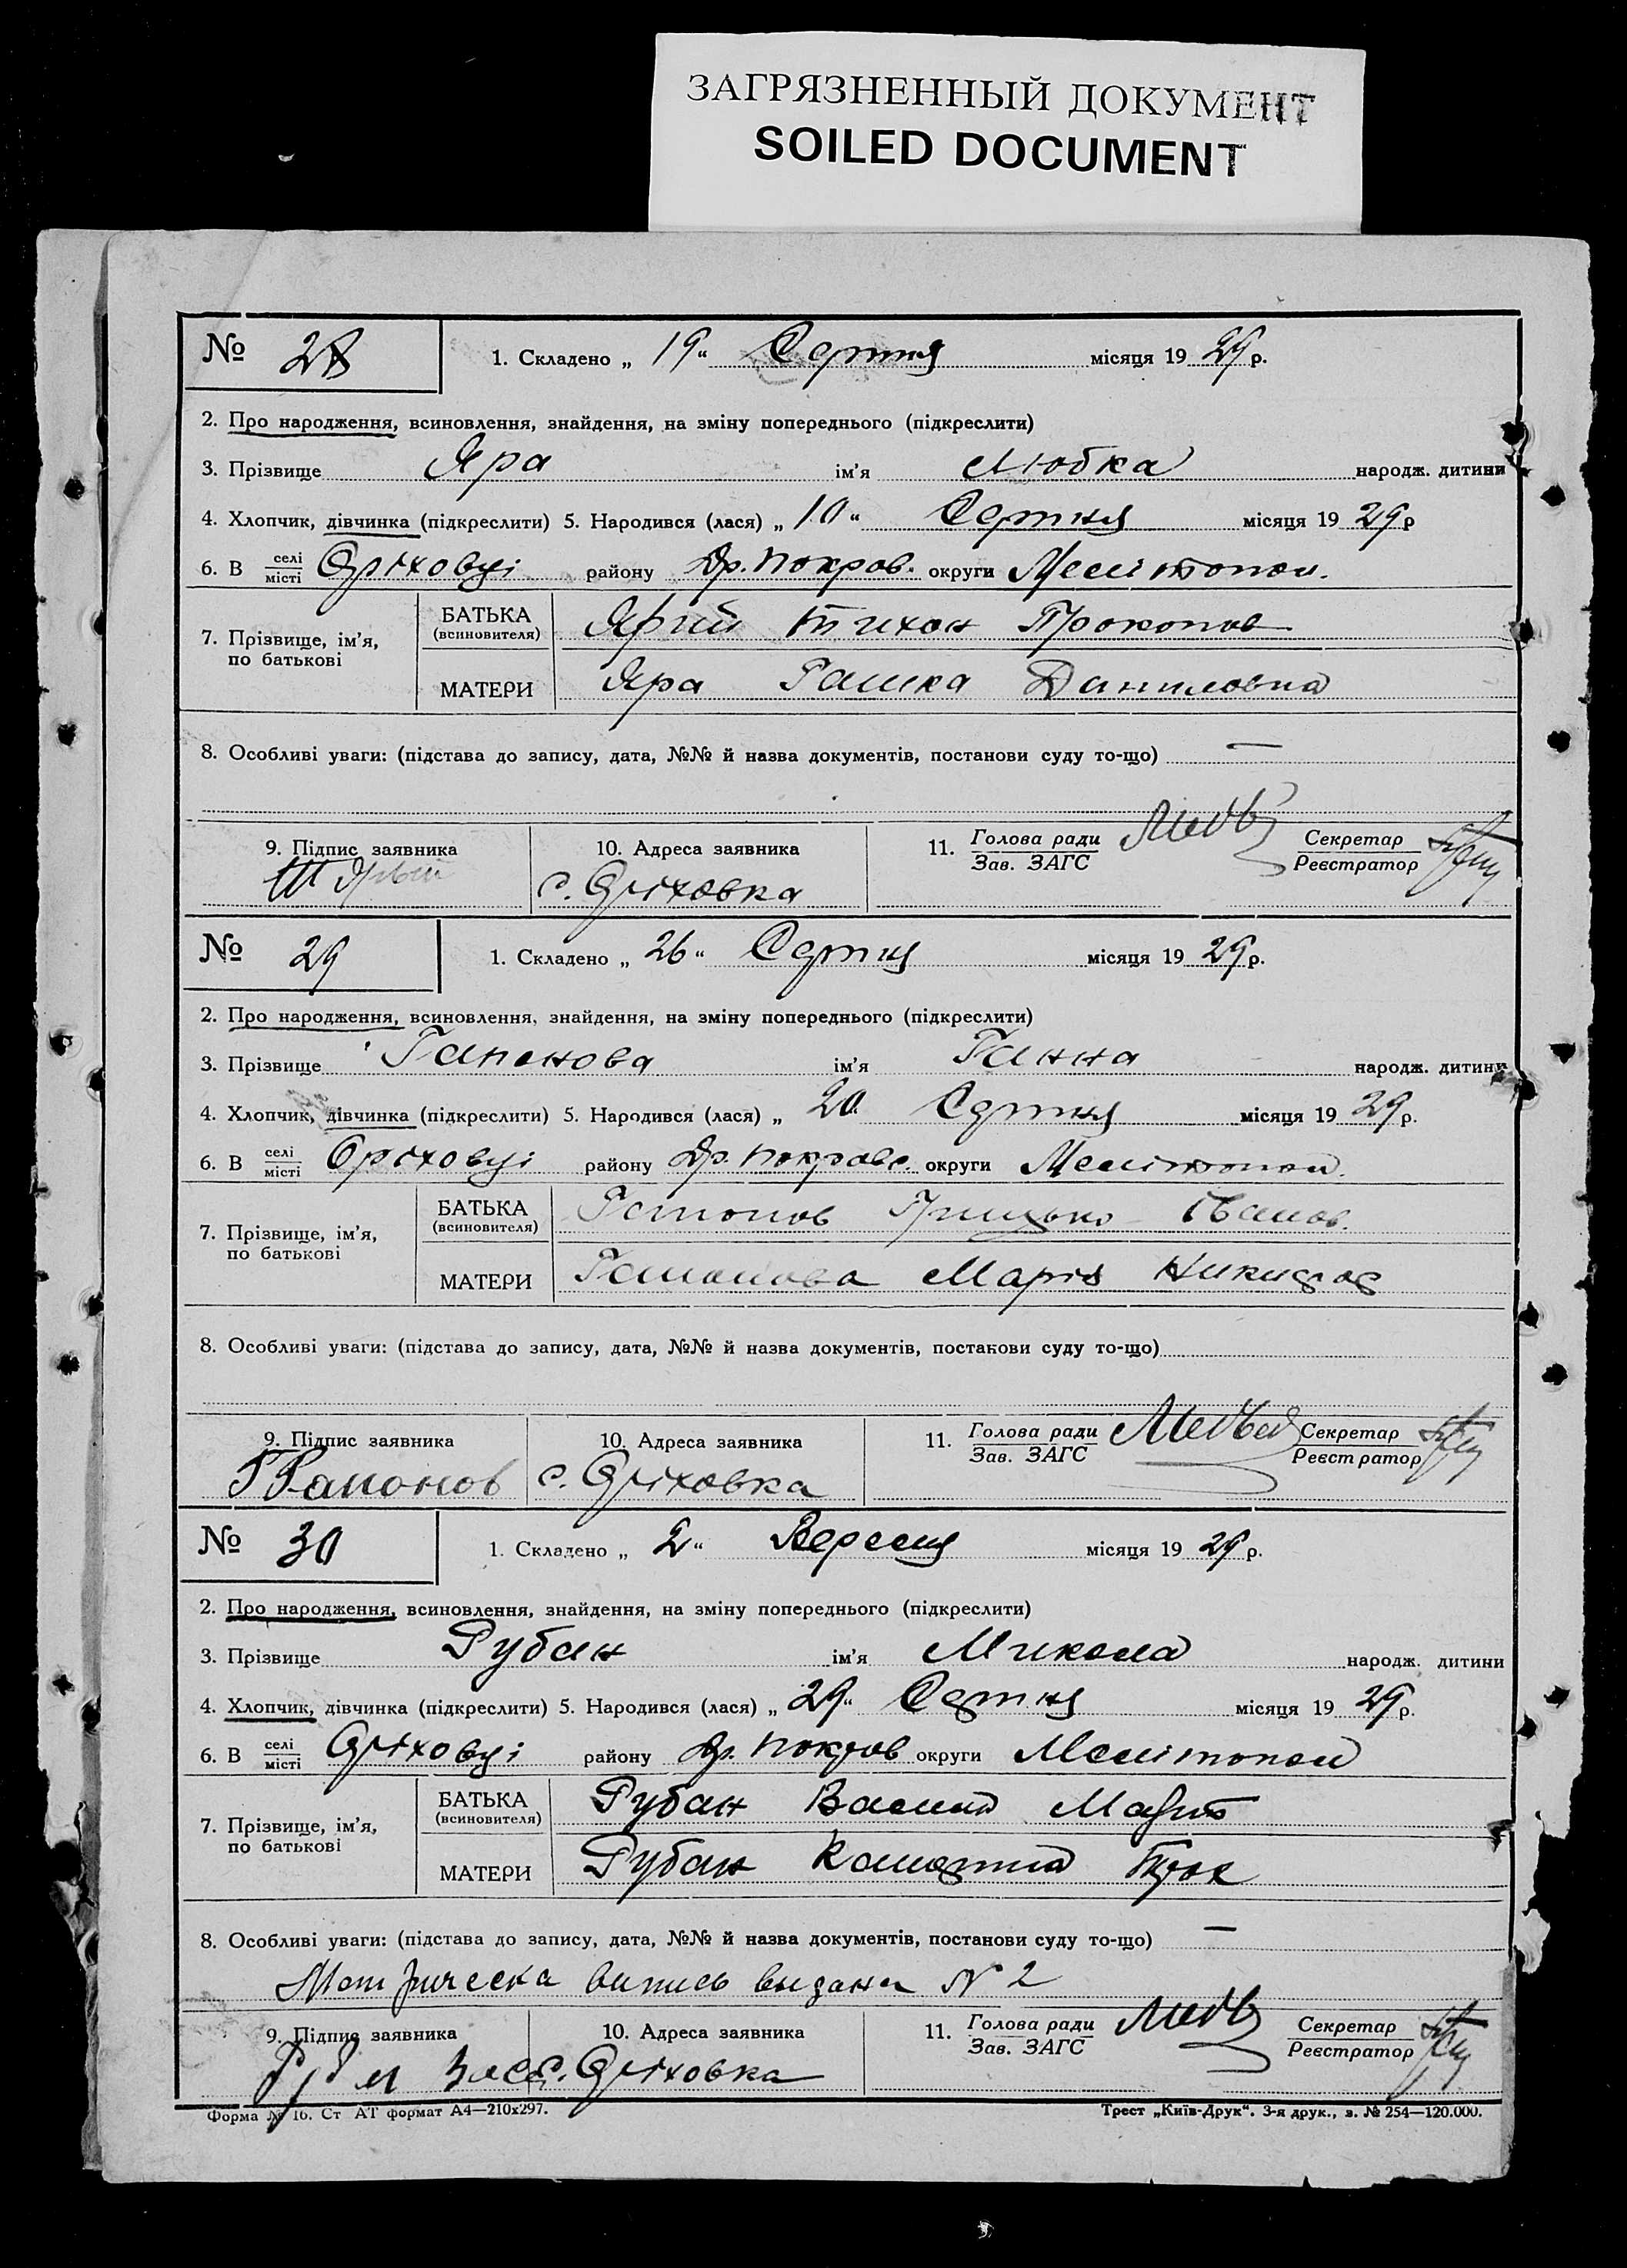 ЗАГРЯЗНЕННЫЙ ДОКУМЕНТ
SOILED DOCUMENT
№ 28 1. Складено „ 19 “ Серпня місяця 19 29 р.
2. Про народження, всиновлення, знайдення, на зміну попереднього (підкреслити)
3. Прізвище Яра ім'я Любка народж. дитини
4. Хлопчик, дівчинка (підкреслити) 5. Народився (лася) „ 10 “ Серпня місяця 19 29 р
6. В селі/місті Оріховці району Др. Покров. округи Мелітопол.
7. Прізвище, ім'я, по батькові
БАТЬКА (всиновителя) Ярий Тихон Прокопов
МАТЕРИ Яра Пашка Даниловна
8. Особливі уваги: (підстава до запису, дата, №№ й назва документів, постанови суду то-що) —
9. Підпис заявника 10. Адреса заявника 11. Голова ради/Зав. ЗАГС Секретар/Реєстратор
с. Оріховка
№ 29 1. Складено „ 26 “ Серпня місяця 19 29 р.
2. Про народження, всиновлення, знайдення, на зміну попереднього (підкреслити)
3. Прізвище Гапонова ім'я Ганна народж. дитини
4. Хлопчик, дівчинка (підкреслити) 5. Народився (лася) „ 20 Серпня місяця 19 29 р.
6. В селі/місті Оріховці району Др. Покровс. округи Мелітопол.
7. Прізвище, ім'я, по батькові
БАТЬКА (всиновителя) Гапонов Грицько Іванов.
МАТЕРИ Гапонова Марія Никифор
8. Особливі уваги: (підстава до запису, дата, №№ й назва документів, постанови суду то-що)
9. Підпис заявника 10. Адреса заявника 11. Голова ради/Зав. ЗАГС Секретар/Реєстратор
Г Гапонов с. Оріховка
№ 30 1. Складено „ 2 “ Вересня місяця 19 29 р.
2. Про народження, всиновлення, знайдення, на зміну попереднього (підкреслити)
3. Прізвище Рубан ім'я Микола народж. дитини
4. Хлопчик, дівчинка (підкреслити) 5. Народився (лася) „ 29 “ Серпня місяця 19 29 р.
6. В селі/місті Оріховці району Др. Покров округи Мелітопол
7. Прізвище, ім'я, по батькові
БАТЬКА (всиновителя) Рубан Василий
МАТЕРИ Рубан
8. Особливі уваги: (підстава до запису, дата, №№ й назва документів, постанови суду то-що) —
Метрическа выпись выдана N 2
9. Підпис заявника 10. Адреса заявника 11. Голова ради/Зав. ЗАГС Секретар/Реєстратор
с. Оріховка
Форма № 16. Ст АТ формат А4—210х297. Трест „Київ-Друк“. 3-я друк., з. № 254—120.000.